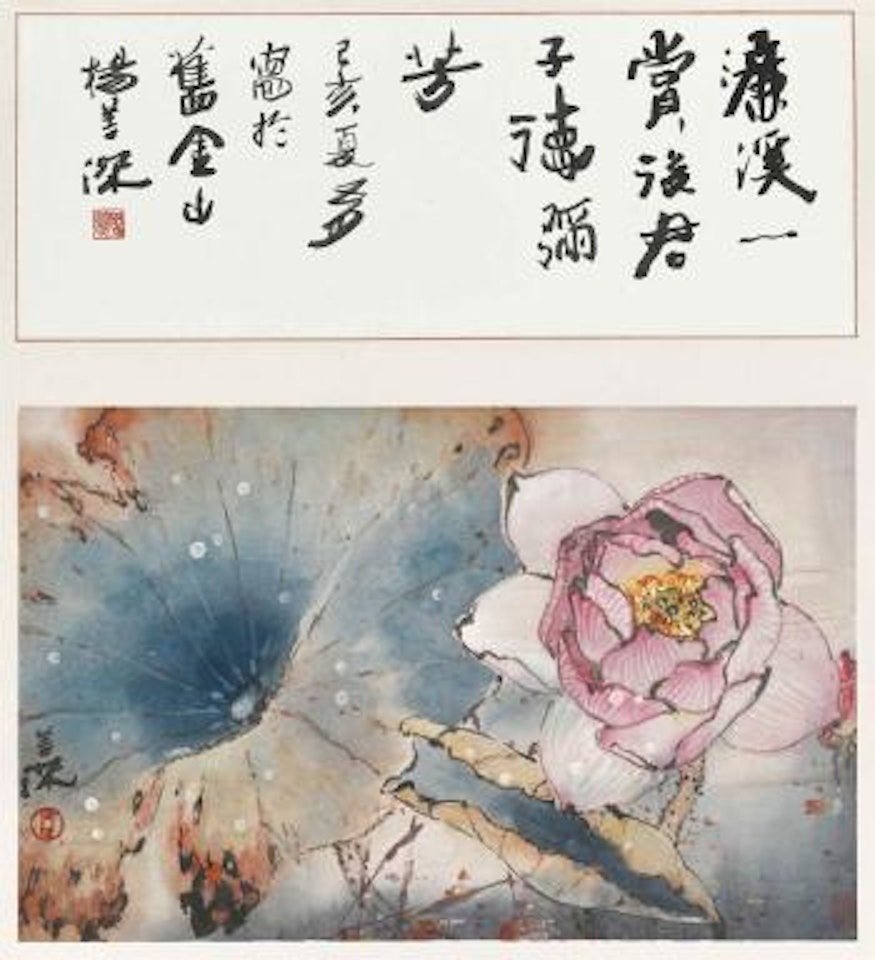 濂溪一
賞後君
子德彌
芳
己亥夏
於
舊金山
楊善深
善深